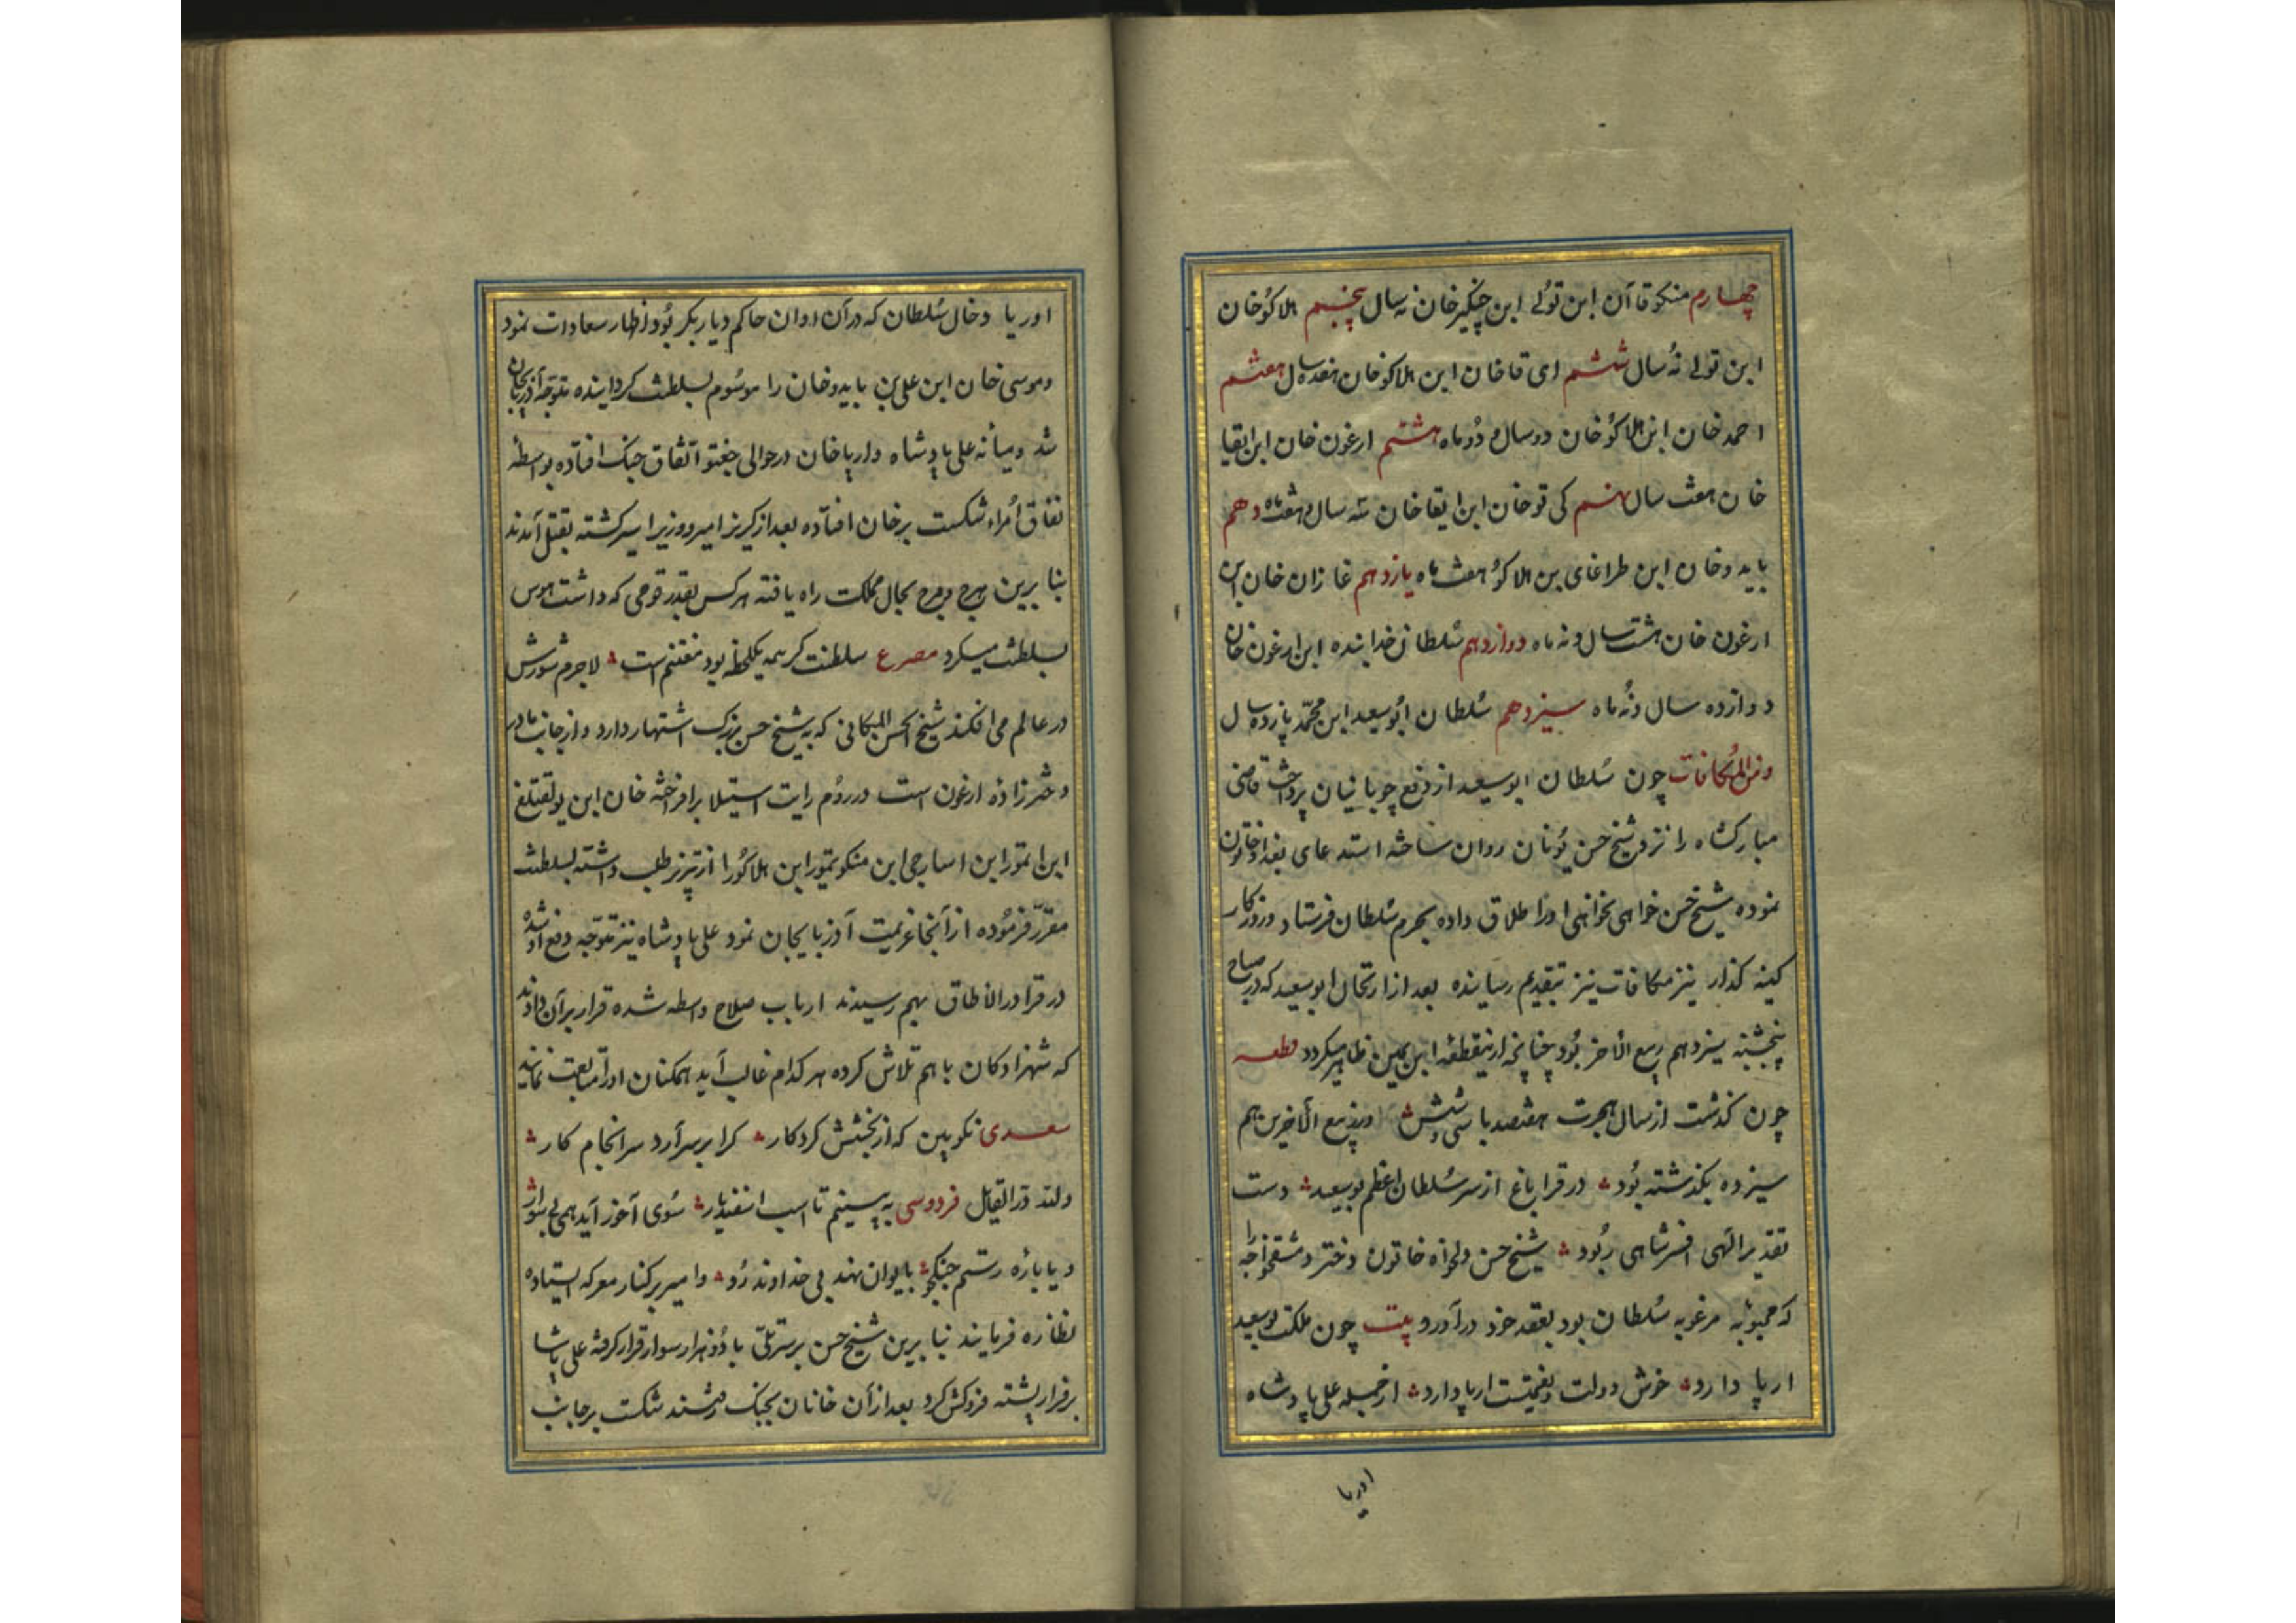 چهارم منکوقاآن ابن تولے ابن چنگیزخان نه سال پنجم هلاکوخان
ابن تولے نه سال ششم ای قاخان ابن هلاکوخان هفده سال هفتم
احمدخان ابن هلاکوخان دو سال و دو ماه هشتم ارغون خان ابن ابقا
خان هفت سال نهم کی توخان ابن ابقاخان سه سال و هفت ماه دهم
بایدوخان ابن طراغای بن هلاکو هفت ماه یازدهم غازان خان ابن
ارغون خان هشت سال و نه ماه دوازدهم سلطان خدابنده ابن ارغون خان
دوازده سال و نه ماه سیزدهم سلطان ابوسعید ابن محمد پانزده سال
ومن المکافات چون سلطان ابوسعید از دفع چوپانیان پرداخت قاضی
مبارکشاه را نزد شیخ حسن نونان روان ساخته استدعای بغداد خاتون
نموده شیخ حسن خواهی نخواهی اورا طلاق داده بحرم سلطان فرستاد و روزکار
کینه کذار نیز مکافات نیز بتقدیم رسانیده بعد از ارتحال ابوسعید که در صباح
پنجشنبه سیزدهم ربیع الآخر بود چنانچه ازین قطعه ابن یمین ظاهر میکردد قطعه
چون کذشت از سال هجرت هفتصد با سی و شش وز ربیع الآخرین هم
سیزده بکذشته بود در قراباغ از سر سلطان اعظم بوسعید دست
تقدیر الهی افسر شاهی ربود شیخ حسن دلواه خاتون دختر دمشقخواجه را
که محبوبه مرغوبه سلطان بود بعقد خود درآورد بیت چون ملکت بوسعید
ارپا دارد خوش دولت و نعمتست ارپا دارد از جمله علی پادشاه
اوریا
اوریا و خال سلطان که در آن اوان حاکم دیاربکر بود اظهار معادات نمود
وموسی خان ابن علی بن بایدوخان را موسوم بسلطنت کردانیده متوجه آذربیجان
شد ومیانه علی پادشاه وارپاخان در حوالی جغتو اتفاق جنک افتاده بواسطه
نفاق أمراء شکست برخان افتاده بعد از کریز امیر ووزیر اسیر کشته بقتل آمدند
بنابرین هرج ومرج بحال مملکت راه یافته هرکس بقدر قومی که داشت هوس
بسلطنت میکرد مصرع سلطنت کر همه یکلحظه بود مغتنم است لاجرم شورش
در عالم می افکند شیخ حسن المکانی که به شیخ حسن بزرک اشتهار دارد و از جانب مادر
دخترزاده ارغون است در روم رایات استیلا برافراخته خان ابن یولقتلغ
ابن تمور ابن انبارجی ابن منکوتیمور ابن هلاکورا از تبریز طلب داشته بسلطنت
مقرر فرموده از آنجا عزیمت آذربایجان نمود علی پادشاه نیز متوجه دفع او شده
در قرا درالاطاق بهم رسیدند ارباب صلاح واسطه شده قرار بر آن دادند
که شهزادکان باهم تلاش کرده هرکدام غالب آید همکنان اورا متابعت نمایند
سعدی نکو بین که از بخشش کردکار کرا برسر آرد سرانجام کار
ولله در القایل فردوسی به بینیم تا اسب اسفندیار سوی آخور آید همی بی سوار
ویا باره رستم جنکجو بایوان نهد بی خداوند رو وامیر برکنار معرکه ایستاده
نظاره فرمایند بنابرین شیخ حسن برسر تلی با دو هزار سوار قرار کرفته علی پاشا
برفراز پشته فروکش کرد بعد از آن خانان بجنک درشتند شکست برجانب